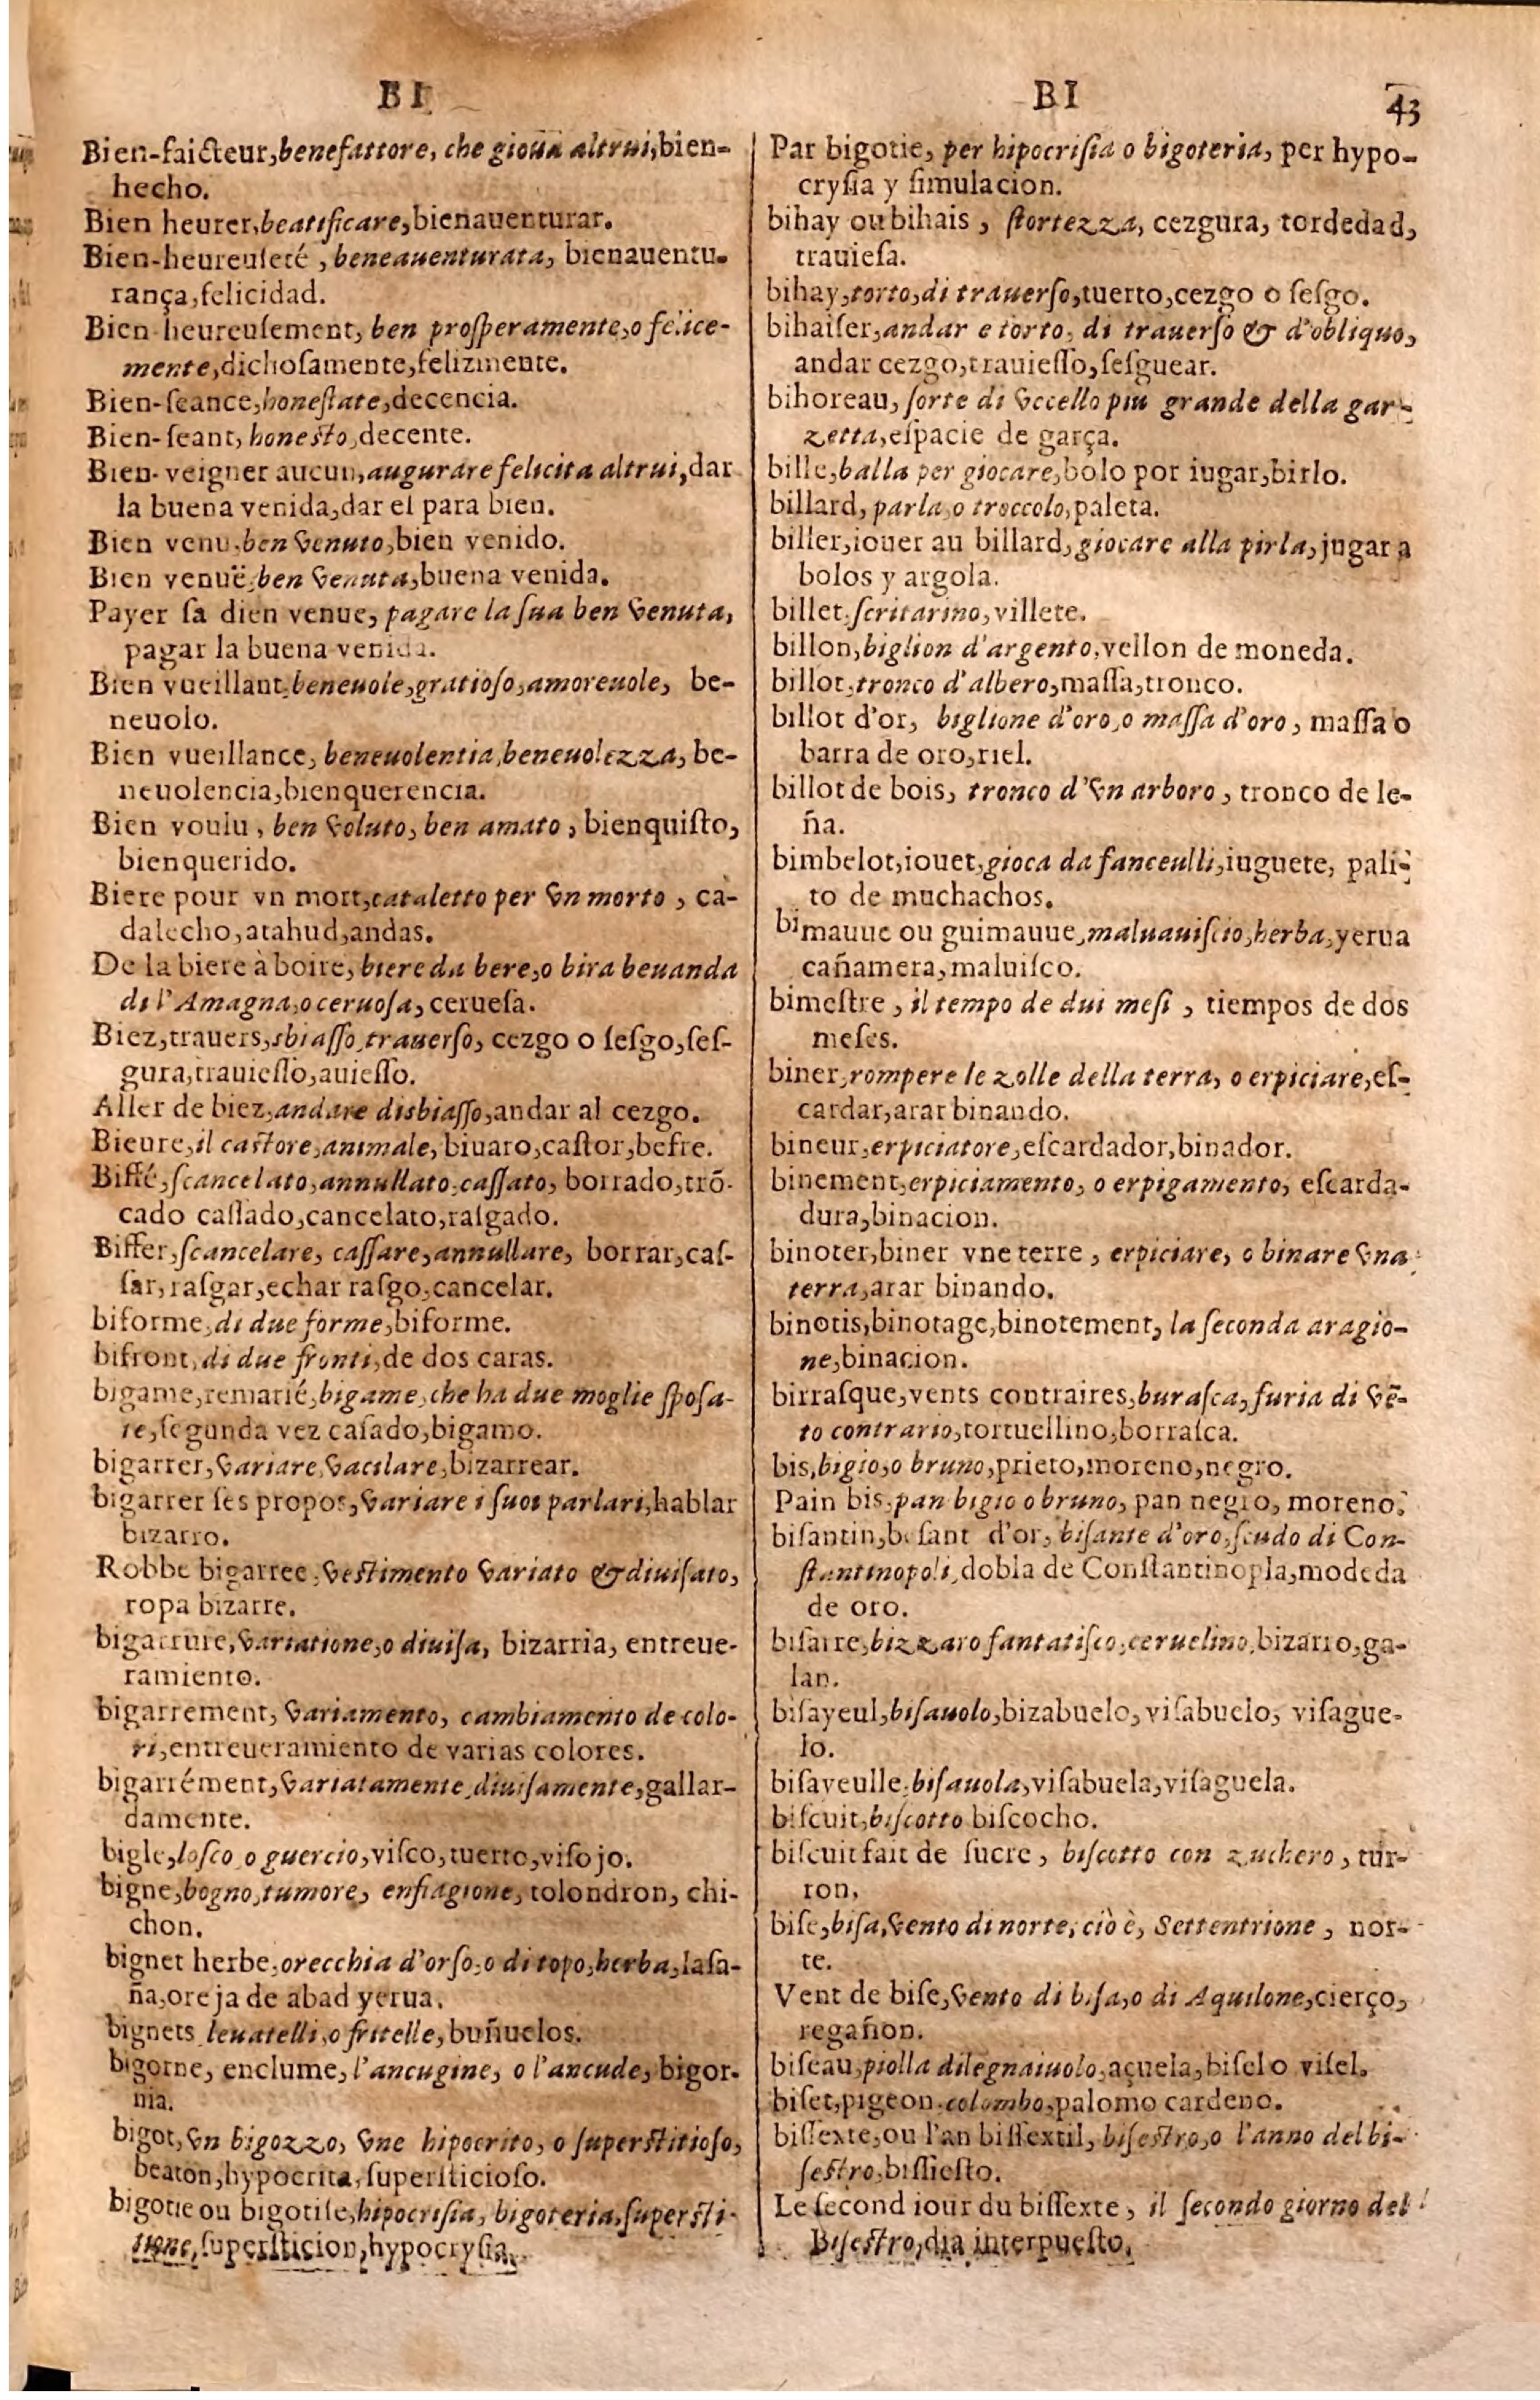 BI
Bien-faicteur, benefattore, che gioua altrui, bien-
hecho.
Bien heurer, beatificare, bienauenturar.
Bien-heureuseté, beneauenturata, bienauentu-
rança, felicidad.
Bien-heureusement, ben prosperamente, o felice-
mente, dichosamente, felizmente.
Bien-seance, honestate, decencia.
Bien-seant, honesto, decente.
Bien-veigner aucun, augurare felicita altrui, dar
la buena venida, dar el para bien.
Bien venu, ben venuto, bien venido.
Bien venuë, ben venuta, buena venida.
Payer sa dien venue, pagare la sua ben venuta,
pagar la buena venida.
Bien vueillant, beneuole, gratioso, amoreuole, be-
neuolo.
Bien vueillance, beneuolentia, beneuolezza, be-
neuolencia, bienquerencia.
Bien voulu, ben voluto, ben amato, bienquisto,
bienquerido.
Biere pour vn mort, cataletto per vn morto, ca-
dalecho, atahud, andas.
De la biere à boire, biere da bere, o bira beuanda
di l'Amagna, o ceruosa, ceruesa.
Biez, trauers, sbiasso, trauerso, cezgo o sesgo, ses-
gura, trauiesso, auiesso.
Aller de biez, andare disbiasso, andar al cezgo.
Bieure, il castore, animale, biuaro, castor, befre.
Biffé, scancelato, annullato, cassato, borrado, trõ-
cado cassado, cancelato, rasgado.
Biffer, scancelare, cassare, annullare, borrar, cas-
sar, rasgar, echar rasgo, cancelar.
biforme, di due forme, biforme.
bifront, di due fronti, de dos caras.
bigame, remarié, bigame, che ha due moglie sposa-
te, segunda vez casado, bigamo.
bigarrer, variare, vacilare, bizarrear.
bigarrer ses propos, variare i suoi parlari, hablar
bizarro.
Robbe bigarree, vestimento variato & diuisato,
ropa bizarre.
bigarrure, variatione, o diuisa, bizarria, entreue-
ramiento.
bigarrement, variamento, cambiamento de colo-
ri, entreueramiento de varias colores.
bigarrément, variatamente, diuisamente, gallar-
damente.
bigle, losco, o guercio, visco, tuerto, visojo.
bigne, bogno, tumore, enfiagione, tolondron, chi-
chon.
bignet herbe, orecchia d'orso, o di topo, herba, lasa-
ña, oreja de abad yerua.
bignets leuatelli, o fritelle, buñuelos.
bigorne, enclume, l'ancugine, o l'ancude, bigor-
nia.
bigot, vn bigozzo, vne hipocrito, o superstitioso,
beaton, hypocrita, supersticioso.
bigotie ou bigotise, hipocrisia, bigoteria, supersti-
tione, supersticion, hypocrysia.
BI 43
Par bigotie, per hipocrisia o bigoteria, per hypo-
crysia y simulacion.
bihay ou bihais, stortezza, cezgura, tordedad,
trauiesa.
bihay, torto, di trauerso, tuerto, cezgo o sesgo.
bihaiser, andar e torto, di trauerso & d'obliquo,
andar cezgo, trauiesso, sesguear.
bihoreau, sorte di vccello piu grande della gar-
zetta, espacie de garça.
bille, balla per giocare, bolo por iugar, birlo.
billard, parla o troccolo, paleta.
biller, iouer au billard, giocare alla pirla, jugar a
bolos y argola.
billet, scritarino, villete.
billon, biglion d'argento, vellon de moneda.
billot, tronco d'albero, massa, tronco.
billot d'or, biglione d'oro, o massa d'oro, massa o
barra de oro, riel.
billot de bois, tronco d'vn arboro, tronco de le-
ña.
bimbelot, iouet, gioca da fanceulli, iuguete, pali-
to de muchachos.
bimauue ou guimauue, maluauiscio, herba, yerua
cañamera, maluisco.
bimestre, il tempo de dui mesi, tiempos de dos
meses.
biner, rompere le zolle della terra, o erpiciare, es-
cardar, arar binando.
bineur, erpiciatore, escardador, binador.
binement, erpiciamento, o erpigamento, escarda-
dura, binacion.
binoter, biner vne terre, erpiciare, o binare vna
terra, arar binando.
binotis, binotage, binotement, la seconda aragio-
ne, binacion.
birrasque, vents contraires, burasca, furia di vē-
to contrario, tortuellino, borrasca.
bis, bigio, o bruno, prieto, moreno, negro.
Pain bis, pan bigio o bruno, pan negro, moreno.
bisantin, besant d'or, bisante d'oro, scudo di Con-
stantinopoli, dobla de Constantinopla, modeda
de oro.
bisarre, bizzaro fantatisco, ceruelino, bizarro, ga-
lan.
bisayeul, bisauolo, bizabuelo, visabuelo, visague-
lo.
bisayeulle, bisauola, visabuela, visaguela.
biscuit, biscotto biscocho.
biscuit fait de sucre, biscotto con zuchero, tur-
ron.
bise, bisa, vento di norte, ciò è, Settentrione, nor-
te.
Vent de bise, vento di bisa, o di Aquilone, cierço,
regañon.
biseau, piolla dilegnaiuolo, açuela, bisel o visel.
biset, pigeon, colombo, palomo cardeno.
bissexte, ou l'an bissextil, bisestro, o l'anno del bi-
sestro, bissiesto.
Le second iour du bissexte, il secondo giorno del
Bisestro, dia interpuesto.